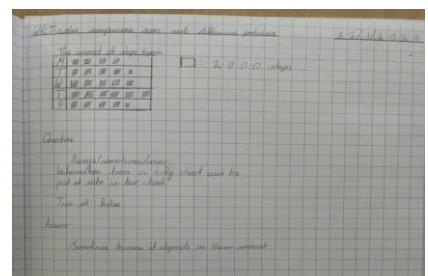 WALT solve comparison, sum and difference problems 22/1/2020
The amount of steps taken
M
T
W
T
F
= 2000 steps
Question
Always/sometimes/never,
Information from a tally chart can be
put it into a bar chart
True or False
Answer
Sometimes because it depends on the amount.